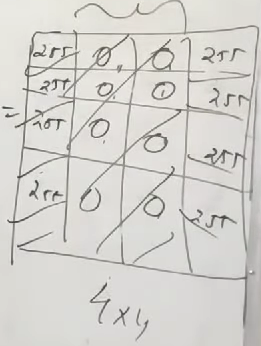 255 0 0 255
255 0 0 255
= 255 0 0 255
255 0 0 255
4x4